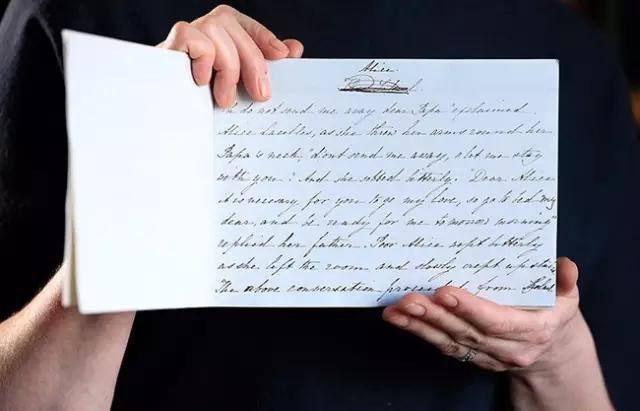 Alice
"Oh do not send me away dear Papa" exclaimed
Alice Lascelles, as she threw her arms round her
Papa's neck, "don't send me away, o let me stay
with you." And she sobbed bitterly. "Dear Alice
it is necessary, for you to go my love, so go to bed my
dear, and be ready for me tomorow morning"
replied her father. Poor Alice wept bitterly
as she left the room and slowly crept upstairs
The above conversation proceeded from